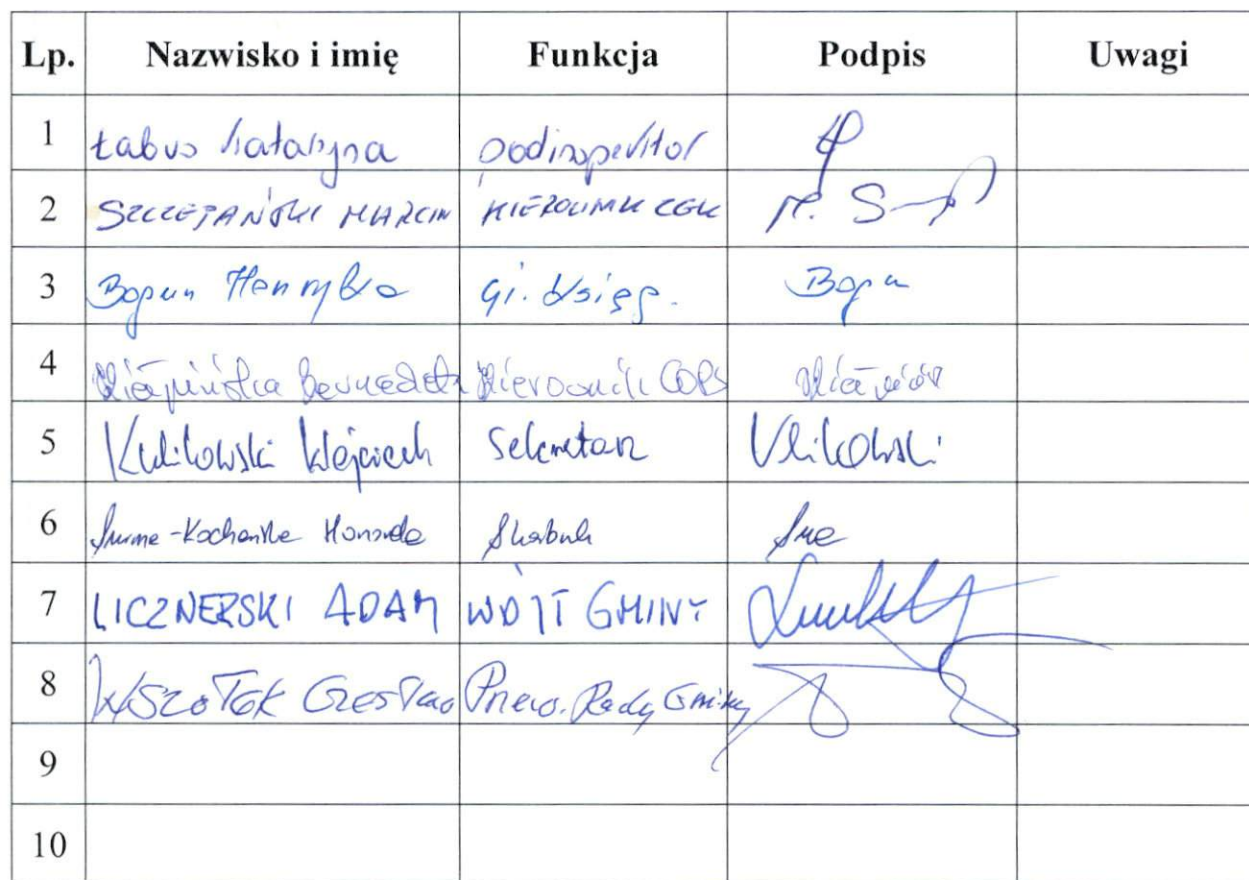 Lp. Nazwisko i imię Funkcja Podpis Uwagi
1 Łabus Katarzyna podinspektor
2 SZCZEPAŃSKI MARCIN KIEROWNIK CGK M. S
3 Bogun Henryka Gł. księg. Bogun
4 Bernadeta Kierownik GOPS
5 Kulikowski Wojciech Sekretarz Kulikowski
6 Honorata Skarbnik
7 LICZNERSKI ADAM WÓJT GMINY
8 WSZOŁEK Czesław Przew. Rady Gminy
9
10